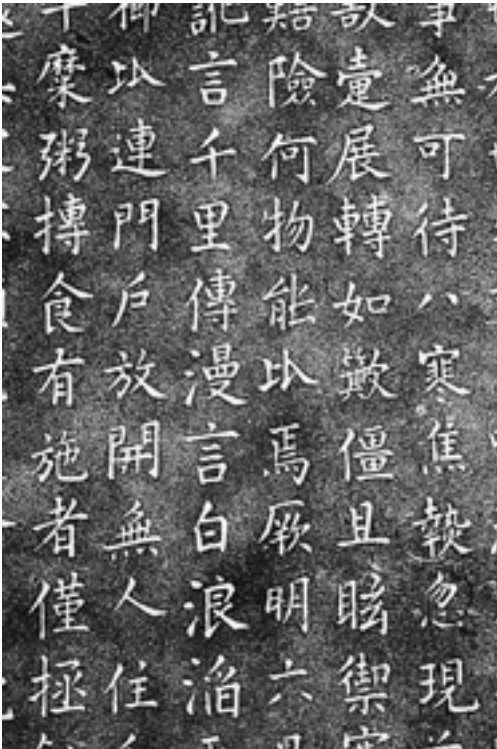 事無可待八寒焦熱忽現
壷展轉如簸僵且眩禦
險何物能比焉厥明六
訛言千里傳漫言白浪滔
御比連門戶放開無人住
糜粥摶食有施者僅拯